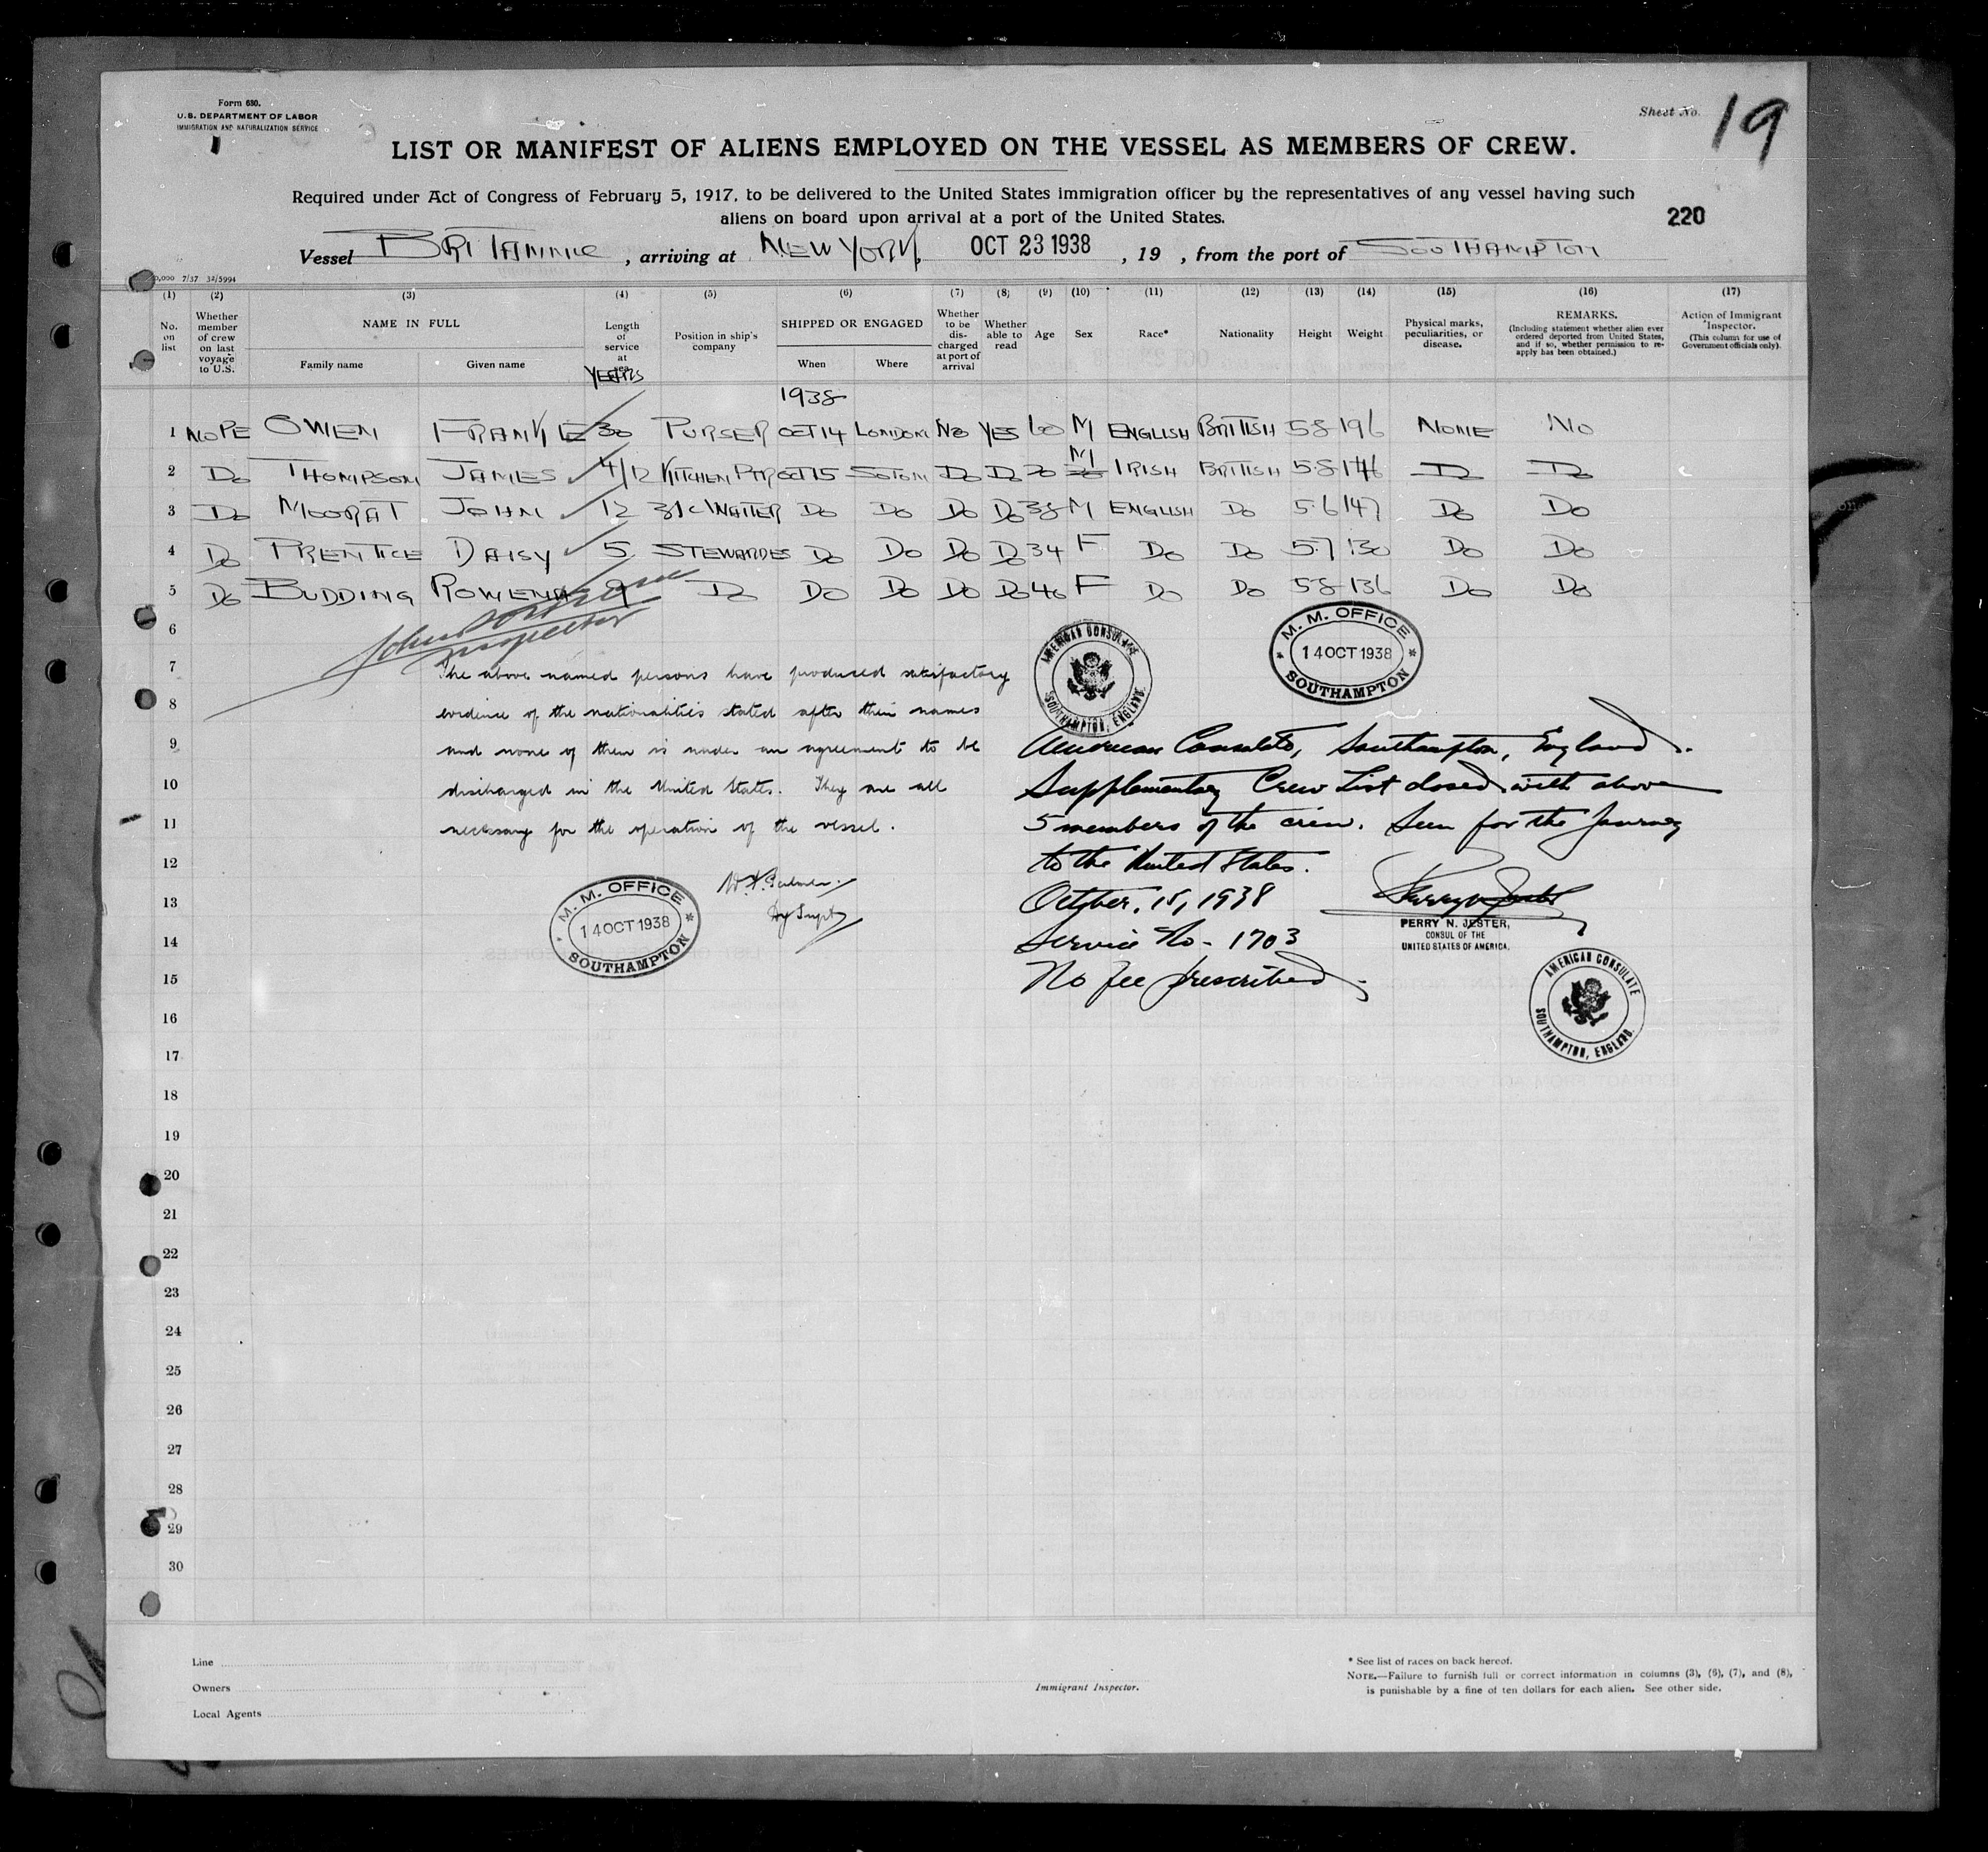 Form 680.
U.S. DEPARTMENT OF LABOR
IMMIGRATION AND NATURALIZATION SERVICE
Sheet No. 19
LIST OR MANIFEST OF ALIENS EMPLOYED ON THE VESSEL AS MEMBERS OF CREW.
Required under Act of Congress of February 5, 1917, to be delivered to the United States immigration officer by the representatives of any vessel having such
aliens on board upon arrival at a port of the United States.
220
Vessel BRITANNIC, arriving at NEW YORK, OCT 23 1938, 19 , from the port of SOUTHAMPTON
7/37 32/5994
(1) (2) (3) (4) (5) (6) (7) (8) (9) (10) (11) (12) (13) (14) (15) (16) (17)
No. on list
Whether member of crew on last voyage to U.S.
NAME IN FULL
Family name Given name
Length of service at sea
YEARS
Position in ship's company
SHIPPED OR ENGAGED
When Where
Whether to be discharged at port of arrival
Whether able to read
Age
Sex
Race*
Nationality
Height
Weight
Physical marks, peculiarities, or disease.
REMARKS.
(Including statement whether alien ever ordered deported from United States, and if so, whether permission to reapply has been obtained.)
Action of Immigrant Inspector.
(This column for use of Government officials only).
1938
1 OWEN FRANK E 30 PURSER OCT 14 LONDON NO YES 60 M ENGLISH BRITISH 5·8 196 NONE NO
2 DO THOMPSON JAMES 4/12 KITCHEN PTR OCT 15 SOTON DO DO 20 M IRISH BRITISH 5·8 146 DO DO
3 DO MOORAT JOHN 12 3/C WAITER DO DO DO DO 38 M ENGLISH DO 5·6 147 DO DO
4 DO PRENTICE DAISY 5 STEWARDES DO DO DO DO 34 F DO DO 5·7 130 DO DO
5 DO BUDDING ROWENA 9 DO DO DO DO DO 40 F DO DO 5·8 136 DO DO
John
Inspector
6
7
8
9
10
11
12
13
14
15
16
17
18
19
20
21
22
23
24
25
26
27
28
29
30
The above named persons have produced satisfactory
evidence of the nationalities stated after their names
and none of them is under an agreement to be
discharged in the United States. They are all
necessary for the operation of the vessel.
Dy Supt
M. M. OFFICE
14 OCT 1938
SOUTHAMPTON
AMERICAN CONSULATE
SOUTHAMPTON, ENGLAND.
M. M. OFFICE
14 OCT 1938
SOUTHAMPTON
American Consulate, Southampton, England.
Supplementary Crew List closed with above
5 members of the crew. Seen for the journey
to the United States.
October, 15, 1938
Service No - 1703
No fee prescribed.
PERRY N. JESTER,
CONSUL OF THE
UNITED STATES OF AMERICA.
AMERICAN CONSULATE
SOUTHAMPTON, ENGLAND.
Line
Owners
Local Agents
Immigrant Inspector.
* See list of races on back hereof.
NOTE.—Failure to furnish full or correct information in columns (3), (6), (7), and (8),
is punishable by a fine of ten dollars for each alien. See other side.